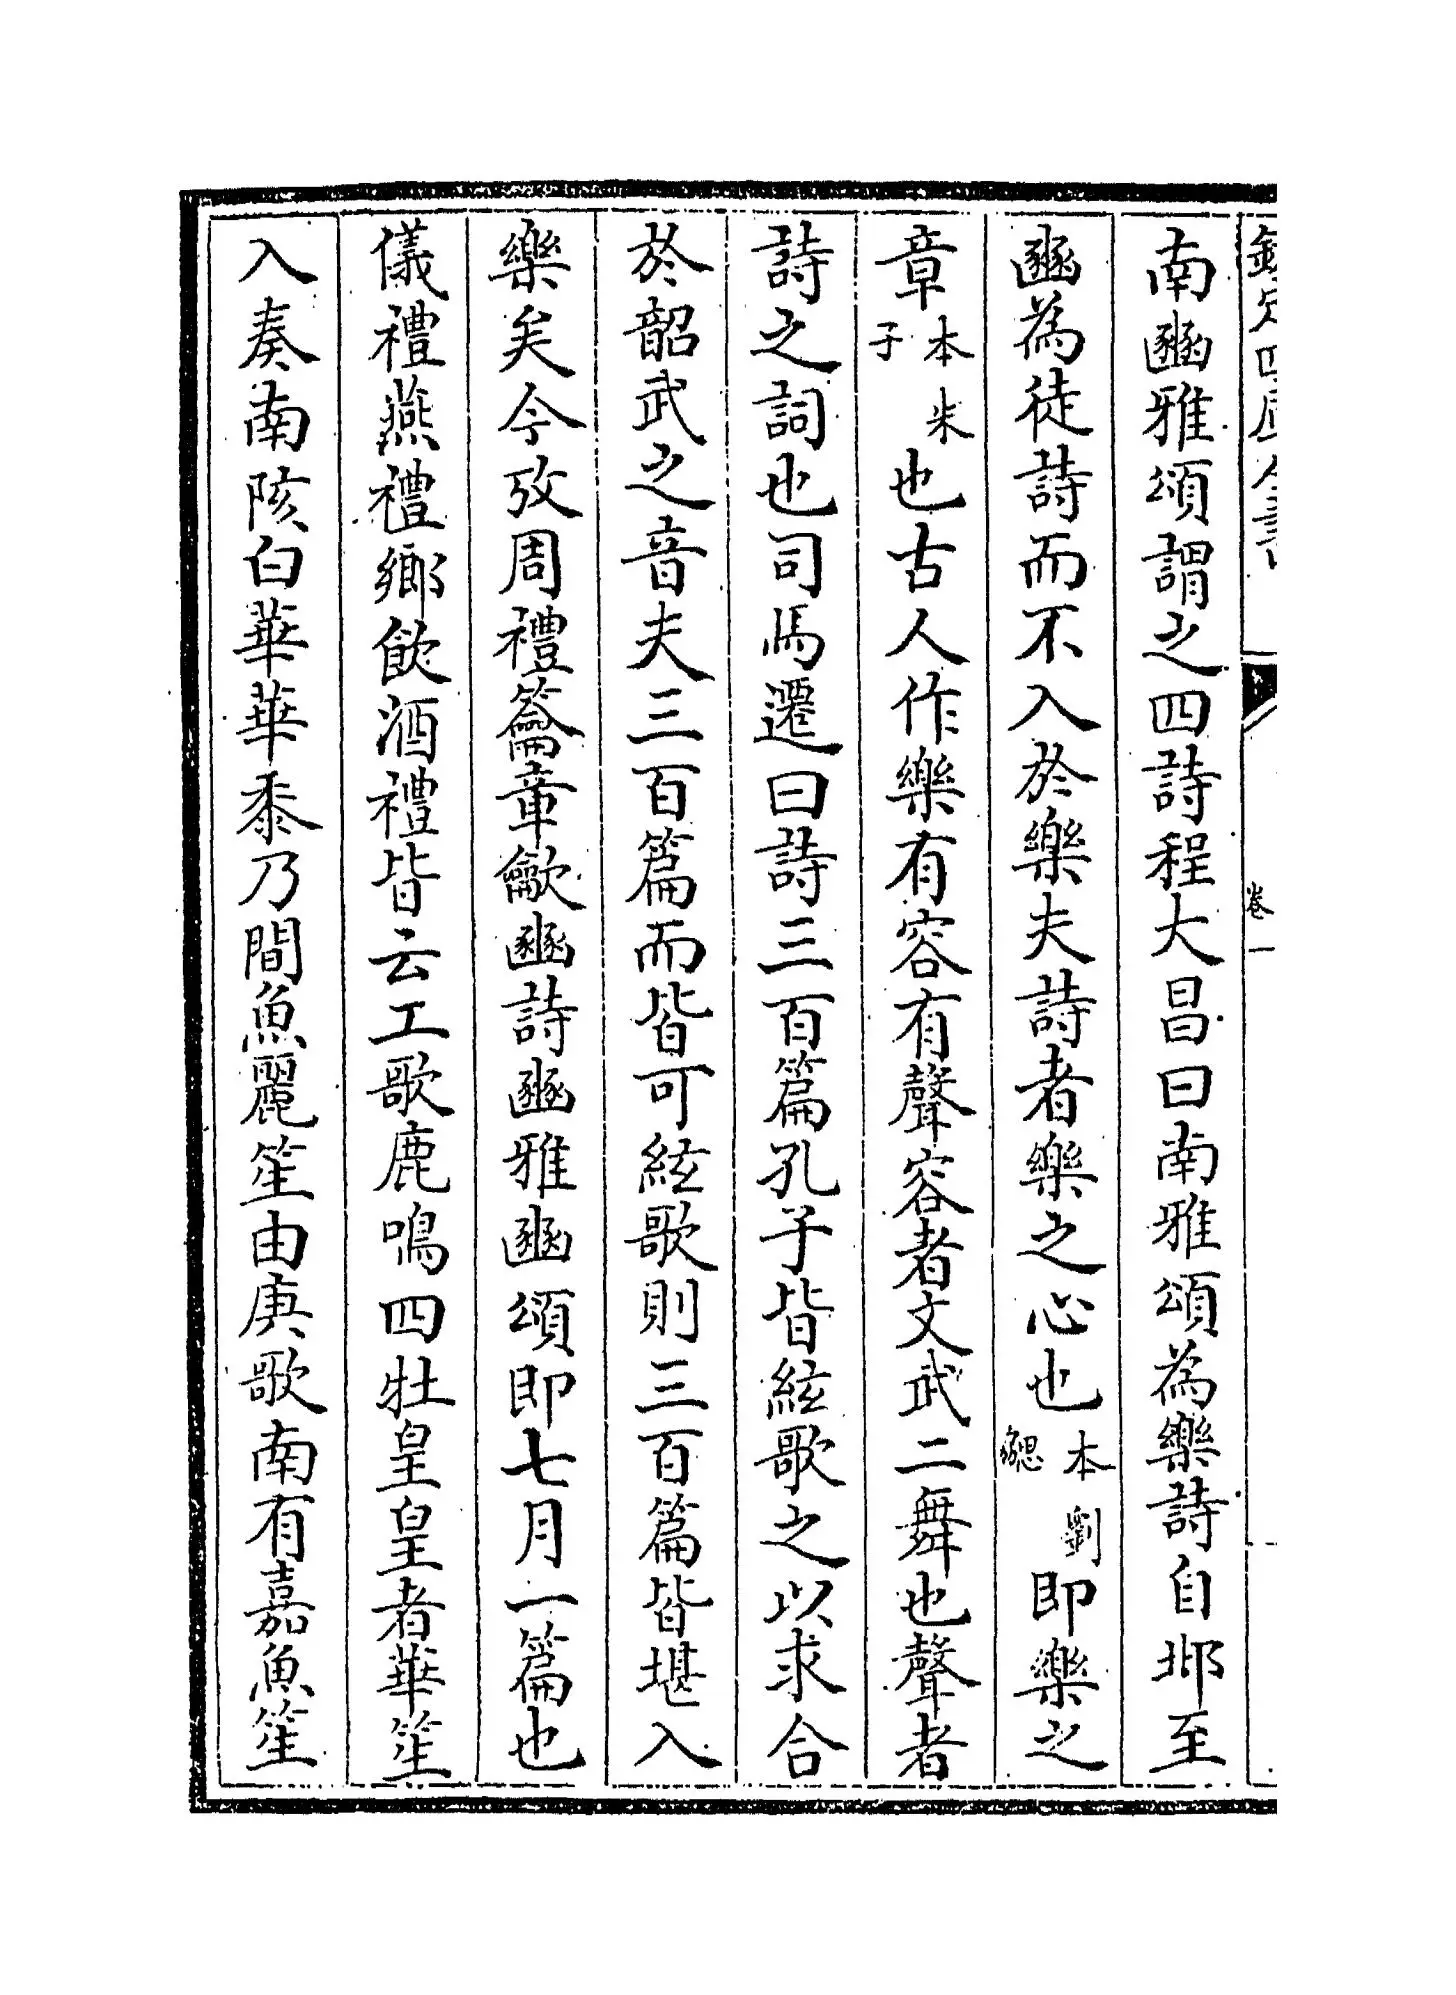 欽定四庫全書
卷一
南豳雅頌謂之四詩程大昌曰南雅頌為樂詩自邶至
豳為徒詩而不入於樂夫詩者樂之心也本劉勰即樂之
章本朱子也古人作樂有容有聲容者文武二舞也聲者
詩之詞也司馬遷曰詩三百篇孔子皆絃歌之以求合
於韶武之音夫三百篇而皆可絃歌則三百篇皆堪入
樂矣今攷周禮籥章龡豳詩豳雅豳頌即七月一篇也
儀禮燕禮鄉飲酒禮皆云工歌鹿鳴四牡皇皇者華笙
入奏南陔白華華黍乃間魚麗笙由庚歌南有嘉魚笙